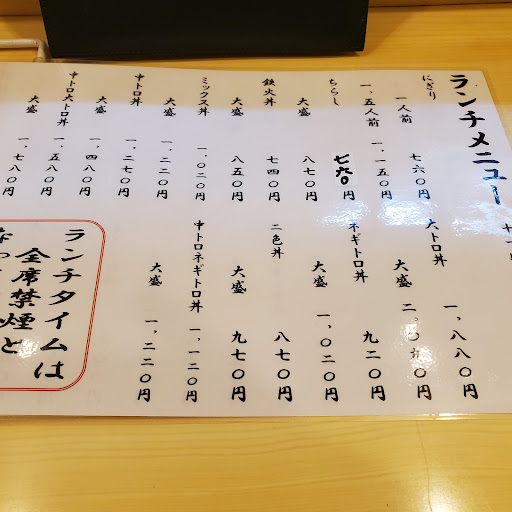 ランチメニュー
にぎり
一人前 七六〇円
一、五人前 一、一五〇円
ちらし 七六〇円
大盛 八七〇円
鉄火丼 七四〇円
大盛 八五〇円
ミックス丼 一、〇二〇円
大盛 一、二二〇円
中トロ丼 一、二七〇円
大盛 一、四八〇円
中トロ大トロ丼 一、五八〇円
大盛 一、七八〇円
大トロ丼 一、八八〇円
大盛 二、〇九〇円
ネギトロ丼 九二〇円
大盛 一、〇二〇円
二色丼 八七〇円
大盛 九七〇円
中トロネギトロ丼 一、一二〇円
大盛 一、二二〇円
ランチタイムは
全席禁煙と
なっ